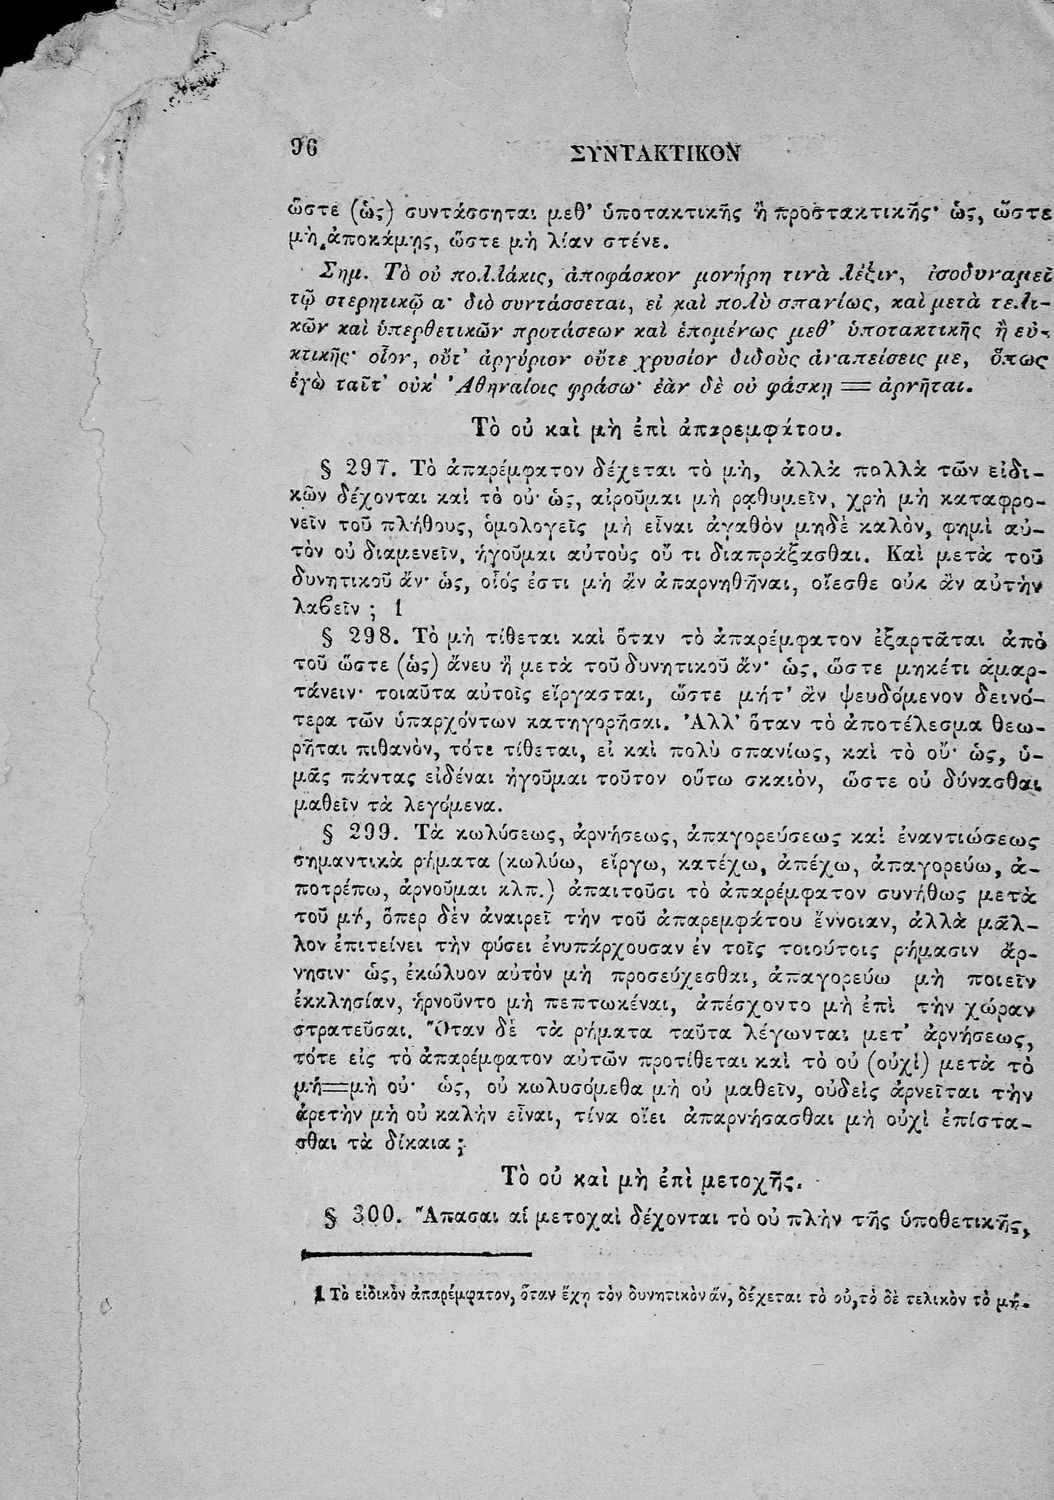 96
ΣΥΝΤΑΚΤΙΚΟΝ
ὥστε (ὡς) συντάσσηται μεθ' ὑποτακτικῆς ἢ προστακτικῆς· ὡς, ὥστε
μὴ ἀποκάμῃς, ὥστε μὴ λίαν στένε.
Σημ. Τὸ οὐ πολλάκις, ἀποφάσκον μονήρη τινὰ λέξιν, ἰσοδυναμεῖ
τῷ στερητικῷ α· διὸ συντάσσεται, εἰ καὶ πολὺ σπανίως, καὶ μετὰ τελι-
κῶν καὶ ὑπερθετικῶν προτάσεων καὶ ἑπομένως μεθ' ὑποτακτικῆς ἢ εὐ-
κτικῆς· οἷον, οὔτ' ἀργύριον οὔτε χρυσίον διδοὺς ἀναπείσεις με, ὅπως
ἐγὼ ταῖτ' οὐκ' Ἀθηναίοις φράσω· ἐὰν δὲ οὐ φάσκῃ = ἀρνῆται.
Τὸ οὐ καὶ μὴ ἐπὶ ἀπαρεμφάτου.
§ 297. Τὸ ἀπαρέμφατον δέχεται τὸ μὴ, ἀλλὰ πολλὰ τῶν εἰδι-
κῶν δέχονται καὶ τὸ οὐ· ὡς, αἱροῦμαι μὴ ῥᾳθυμεῖν, χρὴ μὴ καταφρο-
νεῖν τοῦ πλήθους, ὁμολογεῖς μὴ εἶναι ἀγαθὸν μηδὲ καλὸν, φημὶ αὐ-
τὸν οὐ διαμενεῖν, ἡγοῦμαι αὐτοὺς οὔ τι διαπράξασθαι. Καὶ μετὰ τοῦ
δυνητικοῦ ἄν· ὡς, οἷός ἐστι μὴ ἂν ἀπαρνηθῆναι, οἴεσθε οὐκ ἂν αὐτὴν
λαϐεῖν ; 1
§ 298. Τὸ μὴ τίθεται καὶ ὅταν τὸ ἀπαρέμφατον ἐξαρτᾶται ἀπὸ
τοῦ ὥστε (ὡς) ἄνευ ἢ μετὰ τοῦ δυνητικοῦ ἄν· ὡς, ὥστε μηκέτι ἁμαρ-
τάνειν· τοιαῦτα αὐτοῖς εἴργασται, ὥστε μήτ' ἂν ψευδόμενον δεινό-
τερα τῶν ὑπαρχόντων κατηγορῆσαι. Ἀλλ' ὅταν τὸ ἀποτέλεσμα θεω-
ρῆται πιθανὸν, τότε τίθεται, εἰ καὶ πολὺ σπανίως, καὶ τὸ οὔ· ὡς, ὑ-
μᾶς πάντας εἰδέναι ἡγοῦμαι τοῦτον οὕτω σκαιὸν, ὥστε οὐ δύνασθαι
μαθεῖν τὰ λεγόμενα.
§ 299. Τὰ κωλύσεως, ἀρνήσεως, ἀπαγορεύσεως καὶ ἐναντιώσεως
σημαντικὰ ῥήματα (κωλύω, εἴργω, κατέχω, ἀπέχω, ἀπαγορεύω, ἀ-
ποτρέπω, ἀρνοῦμαι κλπ.) ἀπαιτοῦσι τὸ ἀπαρέμφατον συνήθως μετὰ
τοῦ μή, ὅπερ δὲν ἀναιρεῖ τὴν τοῦ ἀπαρεμφάτου ἔννοιαν, ἀλλὰ μᾶλ-
λον ἐπιτείνει τὴν φύσει ἐνυπάρχουσαν ἐν τοῖς τοιούτοις ῥήμασιν ἄρ-
νησιν· ὡς, ἐκώλυον αὐτὸν μὴ προσεύχεσθαι, ἀπαγορεύω μὴ ποιεῖν
ἐκκλησίαν, ἠρνοῦντο μὴ πεπτωκέναι, ἀπέσχοντο μὴ ἐπὶ τὴν χώραν
στρατεῦσαι. Ὅταν δὲ τὰ ῥήματα ταῦτα λέγωνται μετ' ἀρνήσεως,
τότε εἰς τὸ ἀπαρέμφατον αὐτῶν προτίθεται καὶ τὸ οὐ (οὐχὶ) μετὰ τὸ
μή=μὴ οὐ· ὡς, οὐ κωλυσόμεθα μὴ οὐ μαθεῖν, οὐδεὶς ἀρνεῖται τὴν
ἀρετὴν μὴ οὐ καλὴν εἶναι, τίνα οἴει ἀπαρνήσασθαι μὴ οὐχὶ ἐπίστα-
σθαι τὰ δίκαια ;
Τὸ οὐ καὶ μὴ ἐπὶ μετοχῆς.
§ 300. Ἅπασαι αἱ μετοχαὶ δέχονται τὸ οὐ πλὴν τῆς ὑποθετικῆς,
1 Τὸ εἰδικὸν ἀπαρέμφατον, ὅταν ἔχῃ τὸν δυνητικὸν ἄν, δέχεται τὸ οὐ, τὸ δὲ τελικὸν τὸ μή.